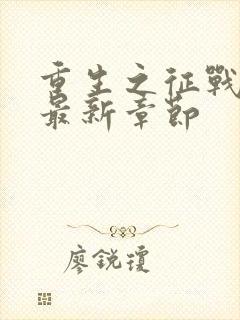 重生之征戰
最新章節
廖銳瓊